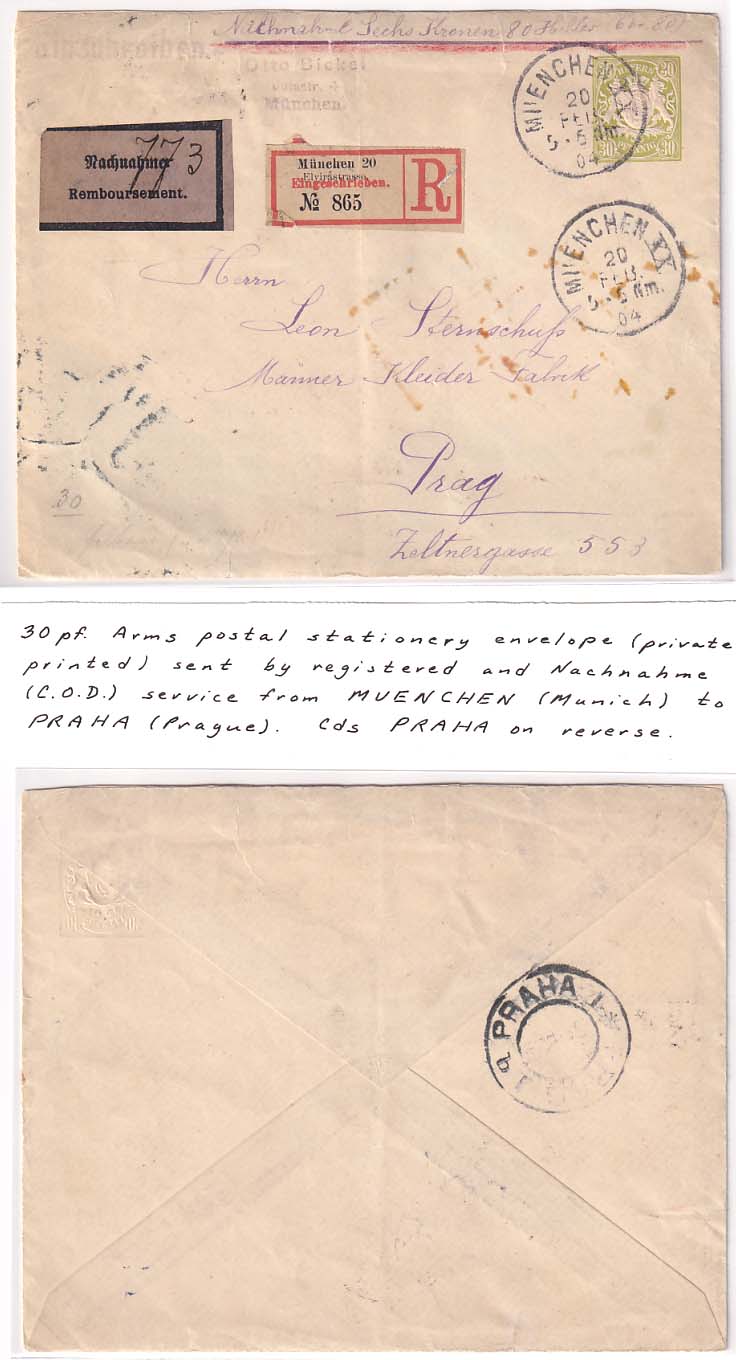 Nachnahme Sechs Kronen 80 Heller
Otto Bickel
München.
MUENCHEN XX
20
FEB.
5-6 Nm.
04
BAYERN
30
30 PFENNIG 30
773
Nachnahme
Remboursement.
München 20
Elvirastrasse.
Eingeschrieben.
№ 865
R
MUENCHEN XX
20
FEB.
5-6 Nm.
04
Herrn
Leon Sternschuß
Männer-Kleider-Fabrik
Prag
Zeltnergasse 553
30
30 pf. Arms postal stationery envelope (private
printed) sent by registered and Nachnahme
(C.O.D.) service from MUENCHEN (Munich) to
PRAHA (Prague). Cds PRAHA on reverse.
PRAHA 1